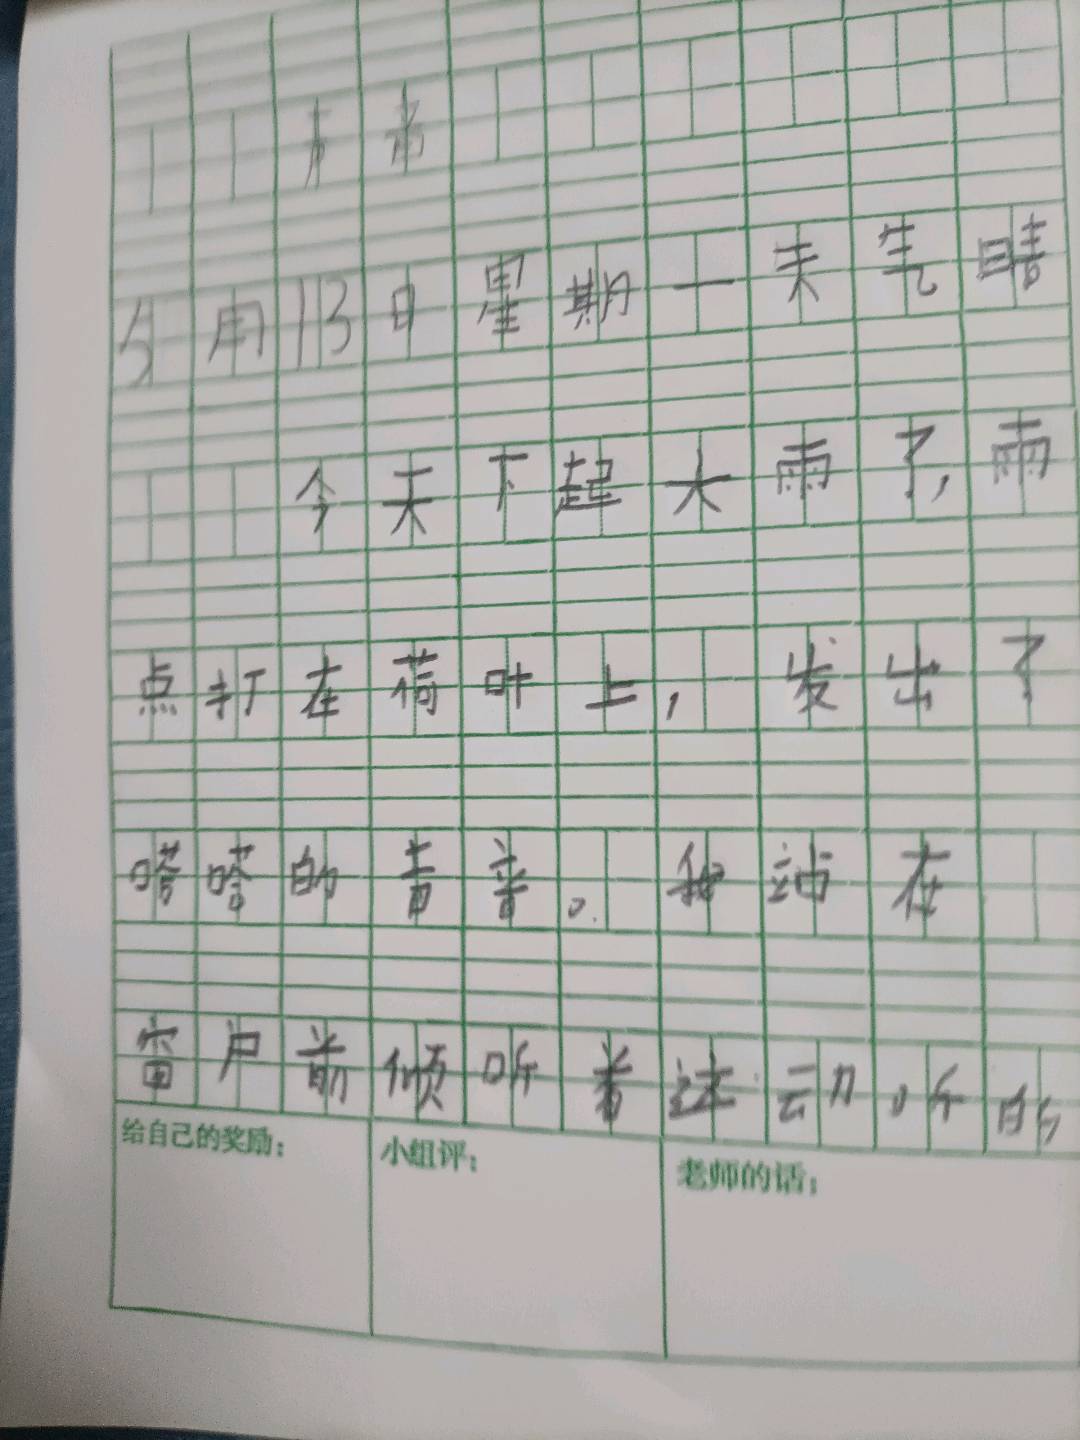 5月13日星期一天气晴
今天下起大雨了,雨
点打在荷叶上,发出了
嗒嗒的声音。我站在
窗户前倾听着这动听的
给自己的奖励: 小组评: 老师的话: